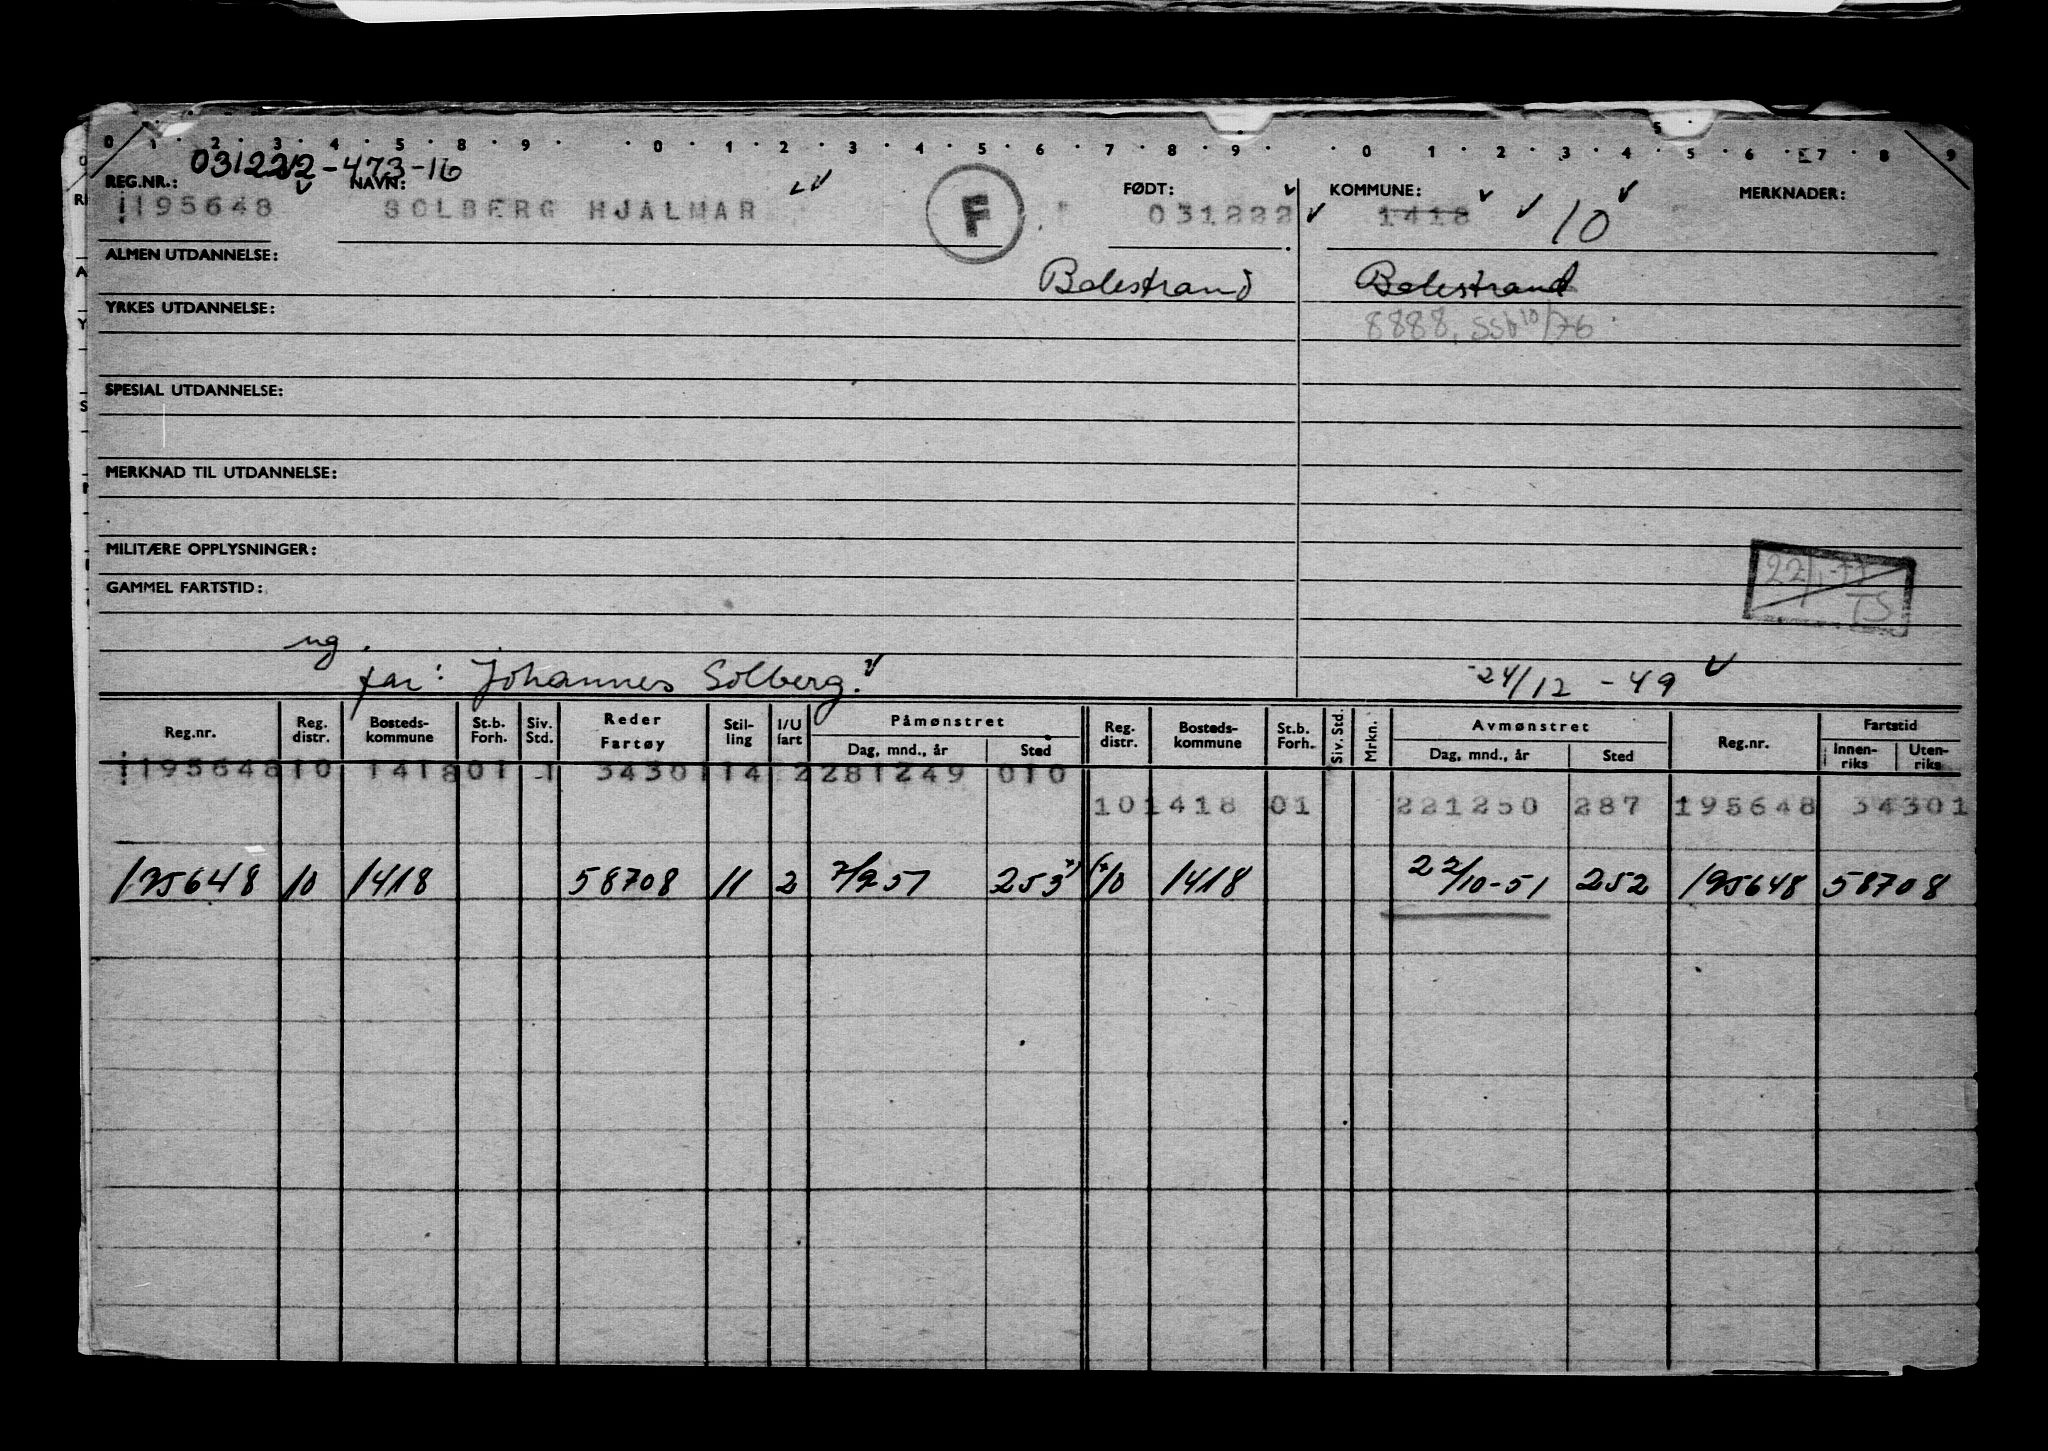 0 1 2 3 4 5 8 9 0 1 2 3 4 5 6 7 8 9 0 1 2 3 4 5 6 7 8 9
031222-473-16
REG.NR.: NAVN: FØDT: KOMMUNE: MERKNADER:
195648 SOLBERG HJALMAR F 031222 1418 10
ALMEN UTDANNELSE: Balestrand Balestrand
YRKES UTDANNELSE: 8888, SSb 10/76
SPESIAL UTDANNELSE:
MERKNAD TIL UTDANNELSE:
MILITÆRE OPPLYSNINGER:
22/1-77
TS
GAMMEL FARTSTID:
ug.
far: Johannes Solberg. 24/12 - 49
Reg.nr. Reg. distr. Bosteds-kommune St.b. Forh. Siv. Std. Reder Fartøy Stil-ling I/U fart Påmønstret Dag, mnd., år Sted Reg. distr. Bosteds-kommune St.b. Forh. Siv. Std. Mrkn. Avmønstret Dag, mnd., år Sted Reg.nr. Fartstid Innen-riks Uten-riks
195648 10 1418 01 1 34301 14 2 281249 010
10 1418 01 221250 287 195648 34301
195648 10 1418 58708 11 2 7/9 51 253 10 1418 22/10-51 252 195648 58708